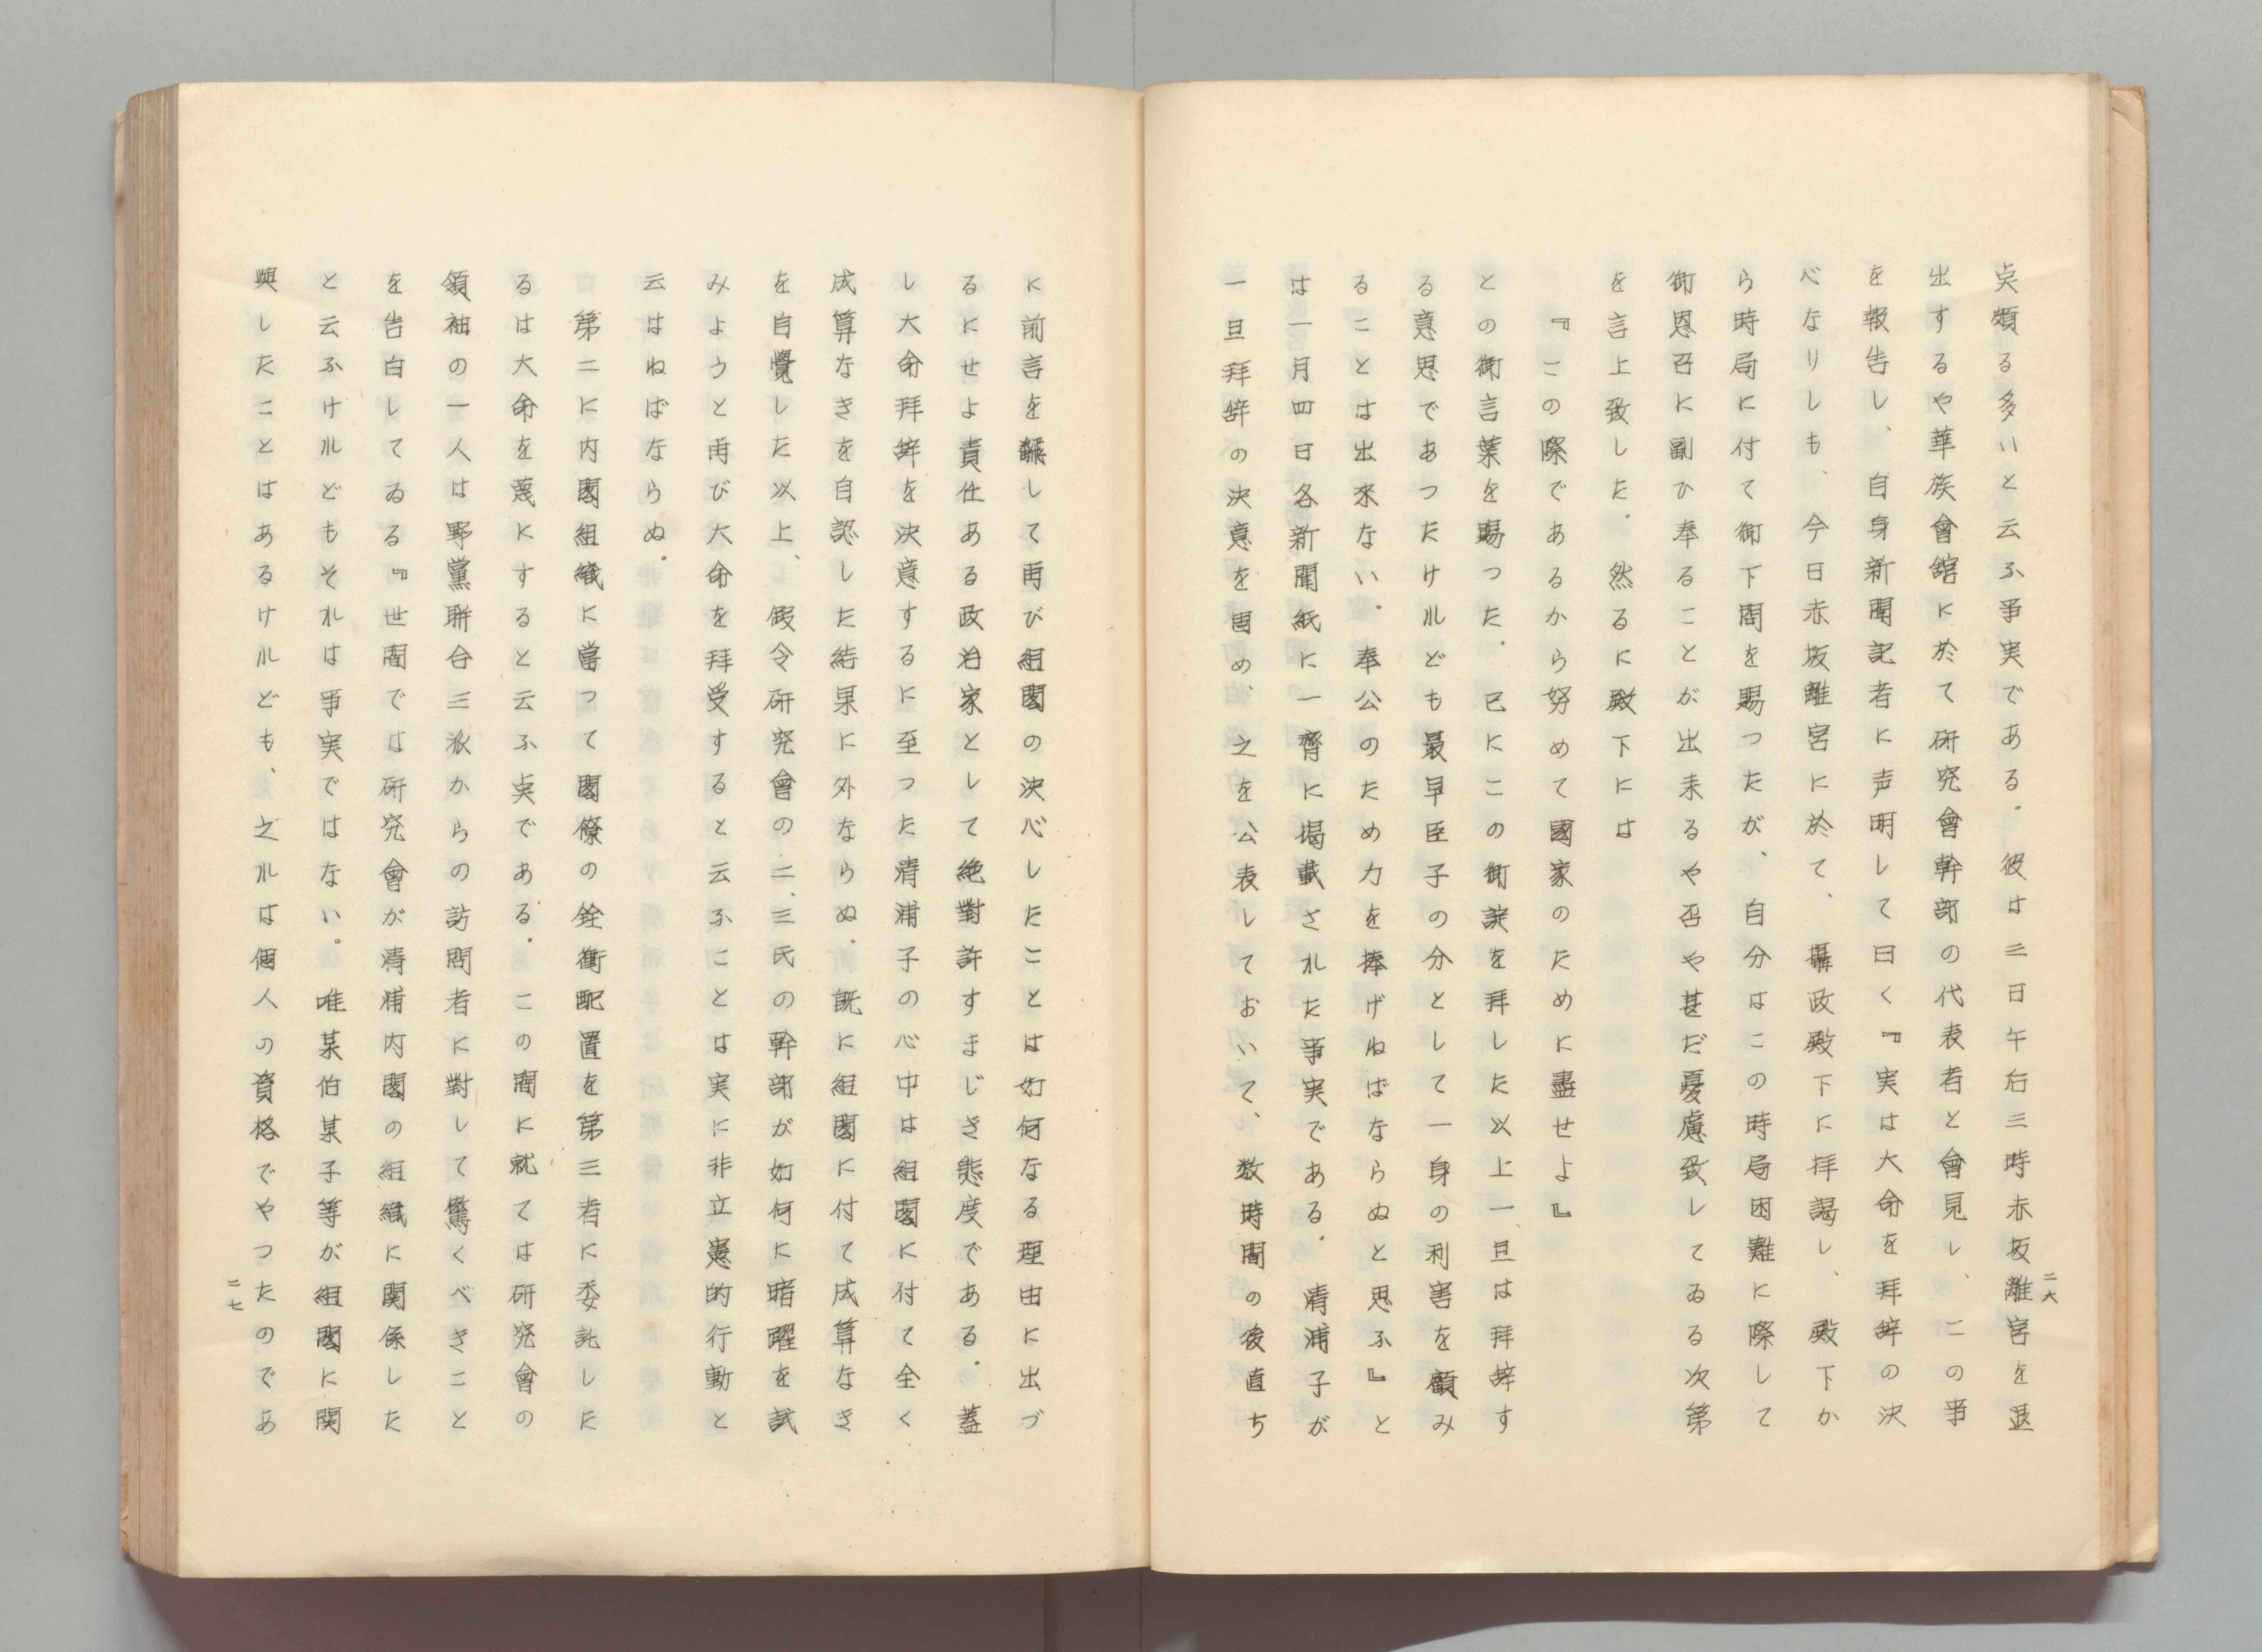 二六
点頗る多いと云ふ事実である。彼は三日午后三時赤坂離宮を退
出するや華族會舘に於て研究會幹部の代表者と會見し、この事
を報告し、自身新聞記者に声明して曰く『実は大命を拜辞の決
べなりしも、今日赤坂離宮に於て、攝政殿下に拝謁し、殿下か
ら時局に付て御下問を賜つたが、自分はこの時局困難に際して
御恩召に副ひ奉ることが出来るや否や甚だ憂慮致してゐる次第
を言上致した。然るに殿下には
『この際であるから努めて國家のために盡せよ』
との御言葉を賜つた。已にこの御諚を拜した以上一旦は拜辞す
る意思であつたけれども最早臣子の分として一身の利害を顧み
ることは出來ない。奉公のため力を捧げねばならぬと思ふ』と
は一月四日各新聞紙に一齊に掲載された事実である。清浦子が
一旦拜辞の決意を固め、之を公表しておいて、数時間の後直ち
に前言を飜して再び組閣の決心したことは如何なる理由に出づ
るにせよ責任ある政治家として絶對許すまじき態度である。蓋
し大命拜辞を決意するに至つた清浦子の心中は組閣に付て全く
成算なきを自認した結果に外ならぬ。既に組閣に付て成算なき
を自覺した以上、假令研究會の二、三氏の幹部が如何に暗躍を試
みようと再び大命を拜受すると云ふことは実に非立憲的行動と
云はねばならぬ。
第二に内閣組織に當つて閣僚の銓衡配置を第三者に委託した
るは大命を蔑にすると云ふ点である。この間に就ては研究會の
領袖の一人は野黨聯合三派からの訪問者に對して驚くべきこと
を告白してゐる『世間では研究會が清浦内閣の組織に関係した
と云ふけれどもそれは事実ではない。唯某伯某子等が組閣に関
與したことはあるけれども、之れは個人の資格でやつたのであ
二七